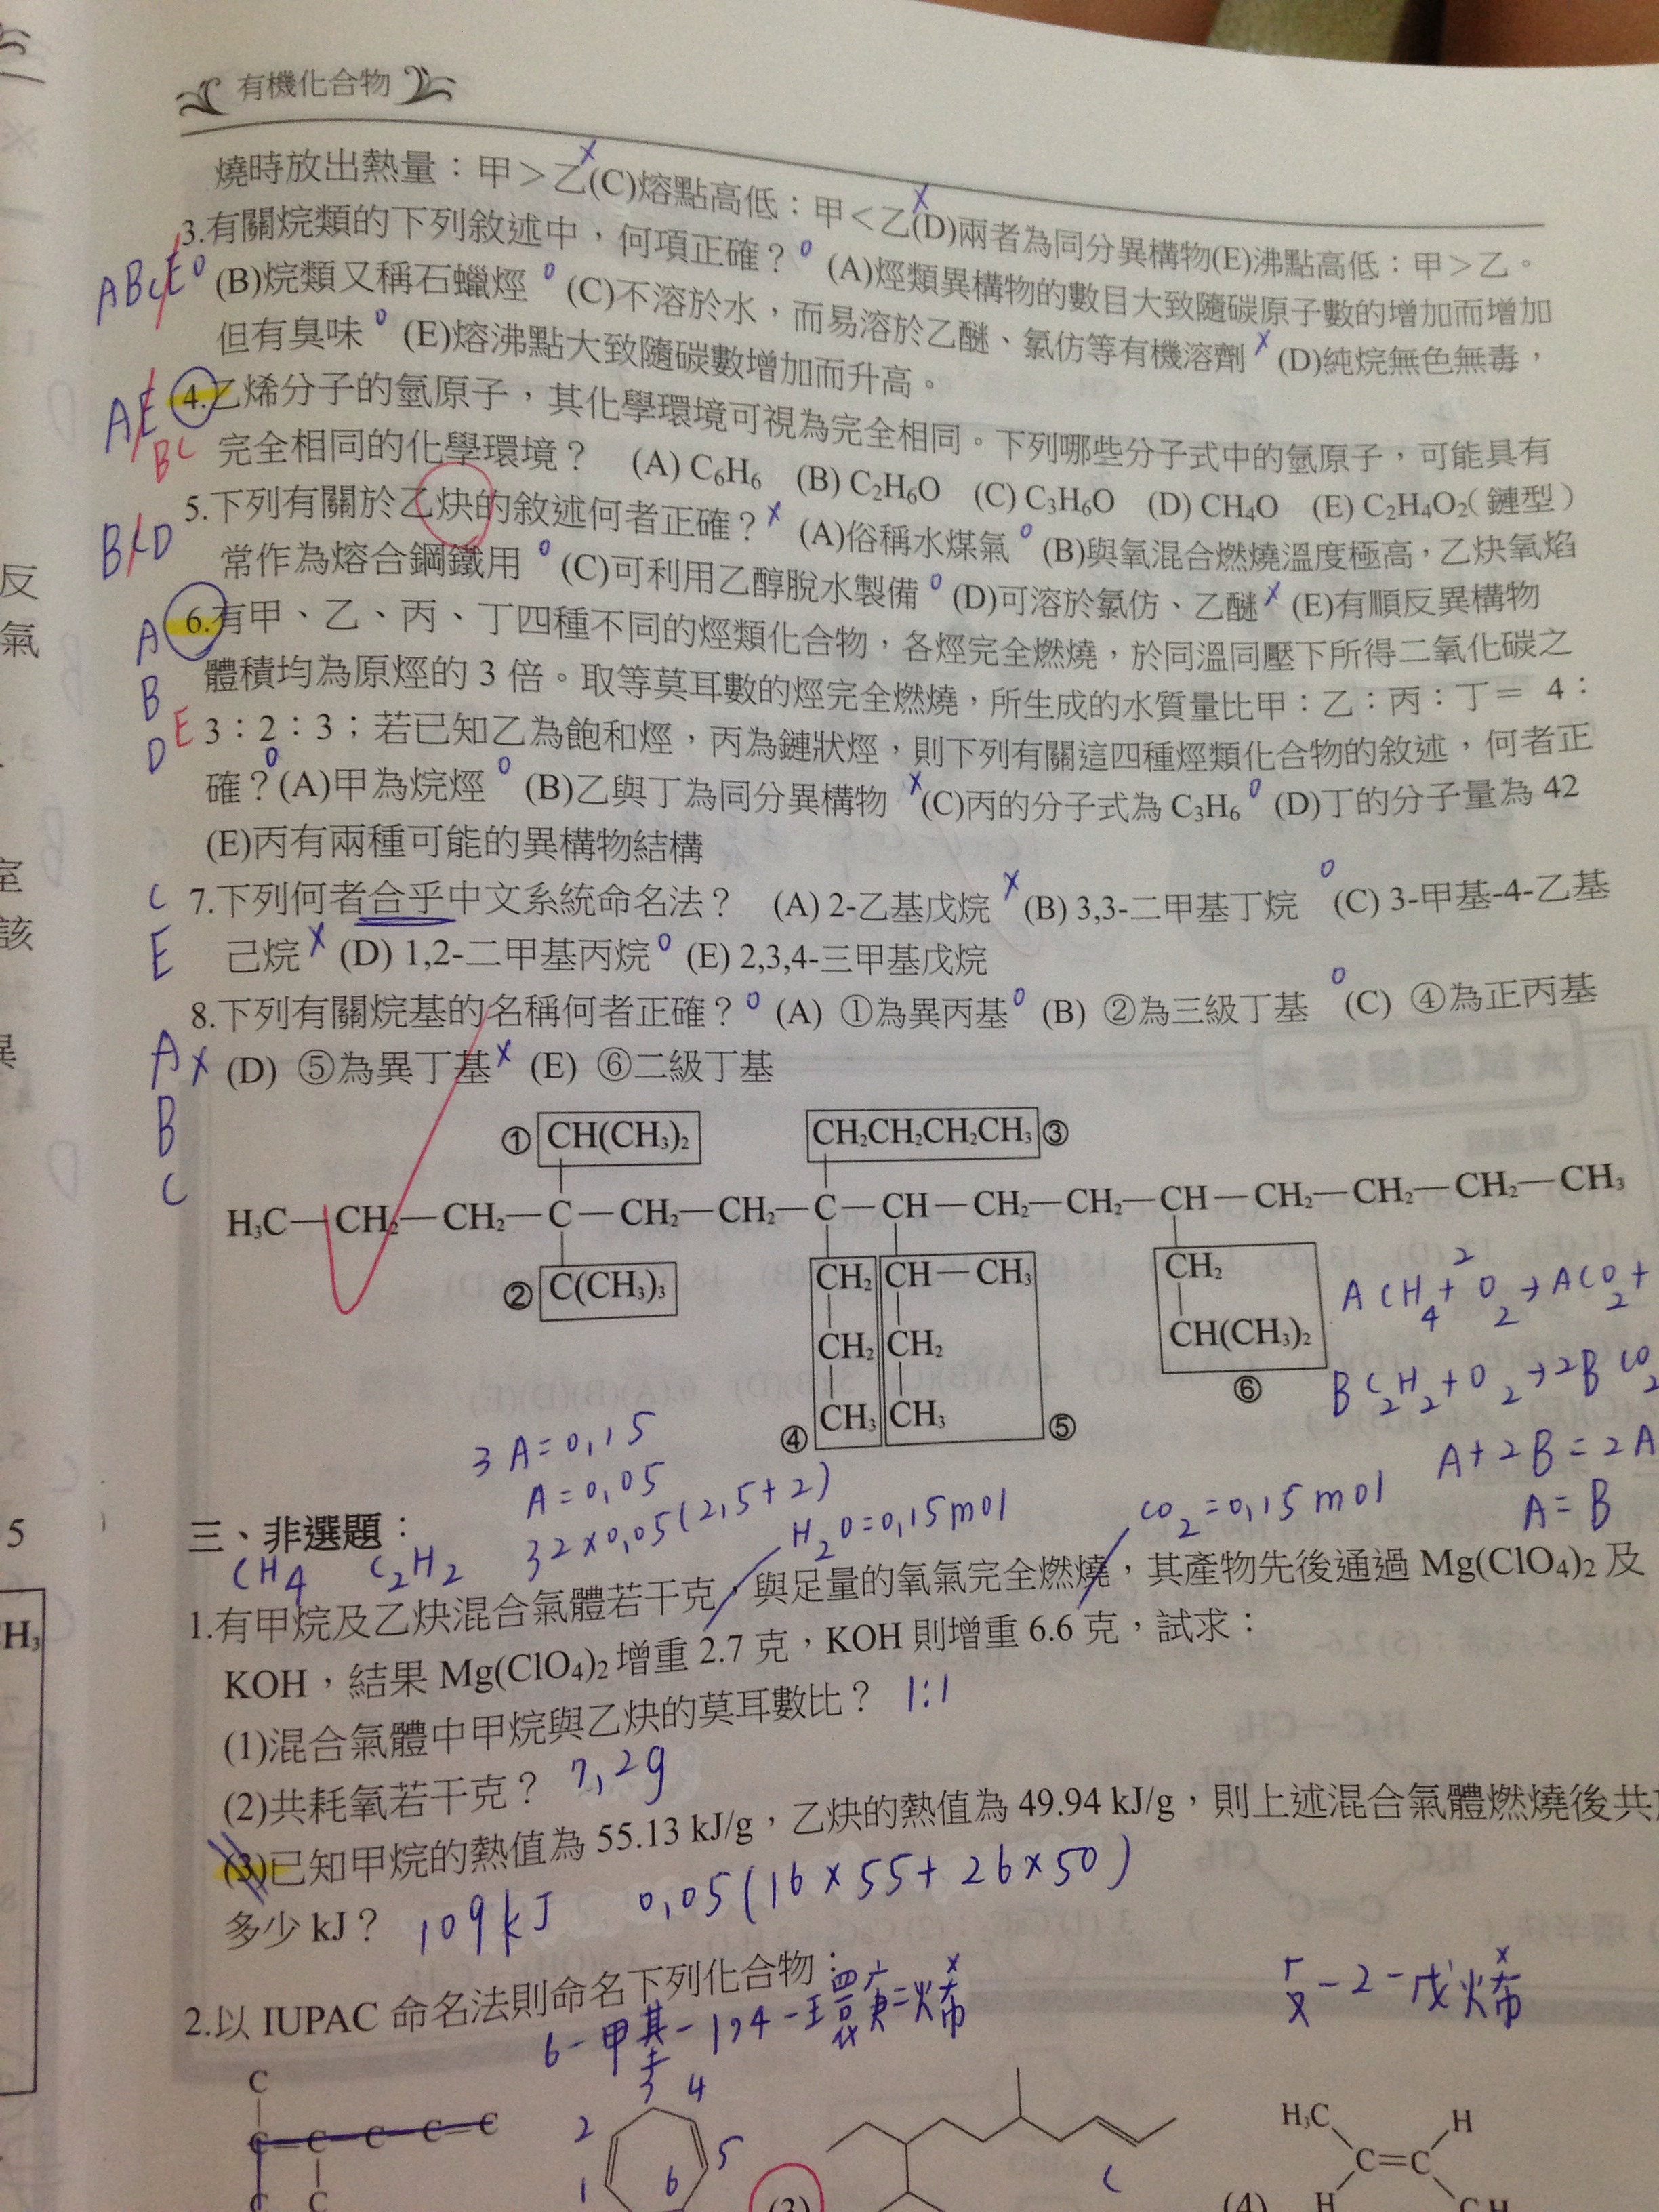 有機化合物
燒時放出熱量：甲＞乙(C)熔點高低：甲＜乙(D)兩者為同分異構物(E)沸點高低：甲＞乙。
3.有關烷類的下列敘述中，何項正確？ (A)烴類異構物的數目大致隨碳原子數的增加而增加
ABCE
(B)烷類又稱石蠟烴 (C)不溶於水，而易溶於乙醚、氯仿等有機溶劑 (D)純烷無色無毒，
但有臭味 (E)熔沸點大致隨碳數增加而升高。
AE
BC
4.乙烯分子的氫原子，其化學環境可視為完全相同。下列哪些分子式中的氫原子，可能具有
完全相同的化學環境？ (A) C₆H₆ (B) C₂H₆O (C) C₃H₆O (D) CH₄O (E) C₂H₄O₂（鏈型）
5.下列有關於乙炔的敘述何者正確？ (A)俗稱水煤氣 (B)與氧混合燃燒溫度極高，乙炔氧焰
BCD
常作為熔合鋼鐵用 (C)可利用乙醇脫水製備 (D)可溶於氯仿、乙醚 (E)有順反異構物
6.有甲、乙、丙、丁四種不同的烴類化合物，各烴完全燃燒，於同溫同壓下所得二氧化碳之
A
體積均為原烴的 3 倍。取等莫耳數的烴完全燃燒，所生成的水質量比甲：乙：丙：丁＝ 4：
B
3：2：3；若已知乙為飽和烴，丙為鏈狀烴，則下列有關這四種烴類化合物的敘述，何者正
D E
確？(A)甲為烷烴 (B)乙與丁為同分異構物 (C)丙的分子式為 C₃H₆ (D)丁的分子量為 42
(E)丙有兩種可能的異構物結構
7.下列何者合乎中文系統命名法？ (A) 2-乙基戊烷 (B) 3,3-二甲基丁烷 (C) 3-甲基-4-乙基
C
己烷 (D) 1,2-二甲基丙烷 (E) 2,3,4-三甲基戊烷
E
8.下列有關烷基的名稱何者正確？ (A) ①為異丙基 (B) ②為三級丁基 (C) ④為正丙基
A
(D) ⑤為異丁基 (E) ⑥二級丁基
B
C
① CH(CH₃)₂ CH₂CH₂CH₂CH₃ ③
H₃C—CH₂—CH₂—C—CH₂—CH₂—C—CH—CH₂—CH₂—CH—CH₂—CH₂—CH₂—CH₃
② C(CH₃)₃ CH₂ CH—CH₃ CH₂
CH₂ CH₂ CH(CH₃)₂
④ CH₃ CH₃ ⑤ ⑥
ACH₄+2O₂→ACO₂+
BC₂H₂+O₂→2BCO₂
A+2B=2A
A=B
3A=0.15
A=0.05
32×0.05(2.5+2)
H₂O=0.15mol
CO₂=0.15mol
三、非選題：
CH₄ C₂H₂
1.有甲烷及乙炔混合氣體若干克，與足量的氧氣完全燃燒，其產物先後通過 Mg(ClO₄)₂ 及
KOH，結果 Mg(ClO₄)₂ 增重 2.7 克，KOH 則增重 6.6 克，試求：
(1)混合氣體中甲烷與乙炔的莫耳數比？ 1:1
(2)共耗氧若干克？ 7.2g
(3)已知甲烷的熱值為 55.13 kJ/g，乙炔的熱值為 49.94 kJ/g，則上述混合氣體燃燒後共
多少 kJ？ 109kJ 0.05(16×55+26×50)
2.以 IUPAC 命名法則命名下列化合物：
6-甲基-1,4-環庚二烯
反-2-戊烯
C
C=C—C—C=C
C C
3 4
2 5
1 6
(3)
H₃C H
C=C
(4) H
反
氣
室
該
異
5
H₃